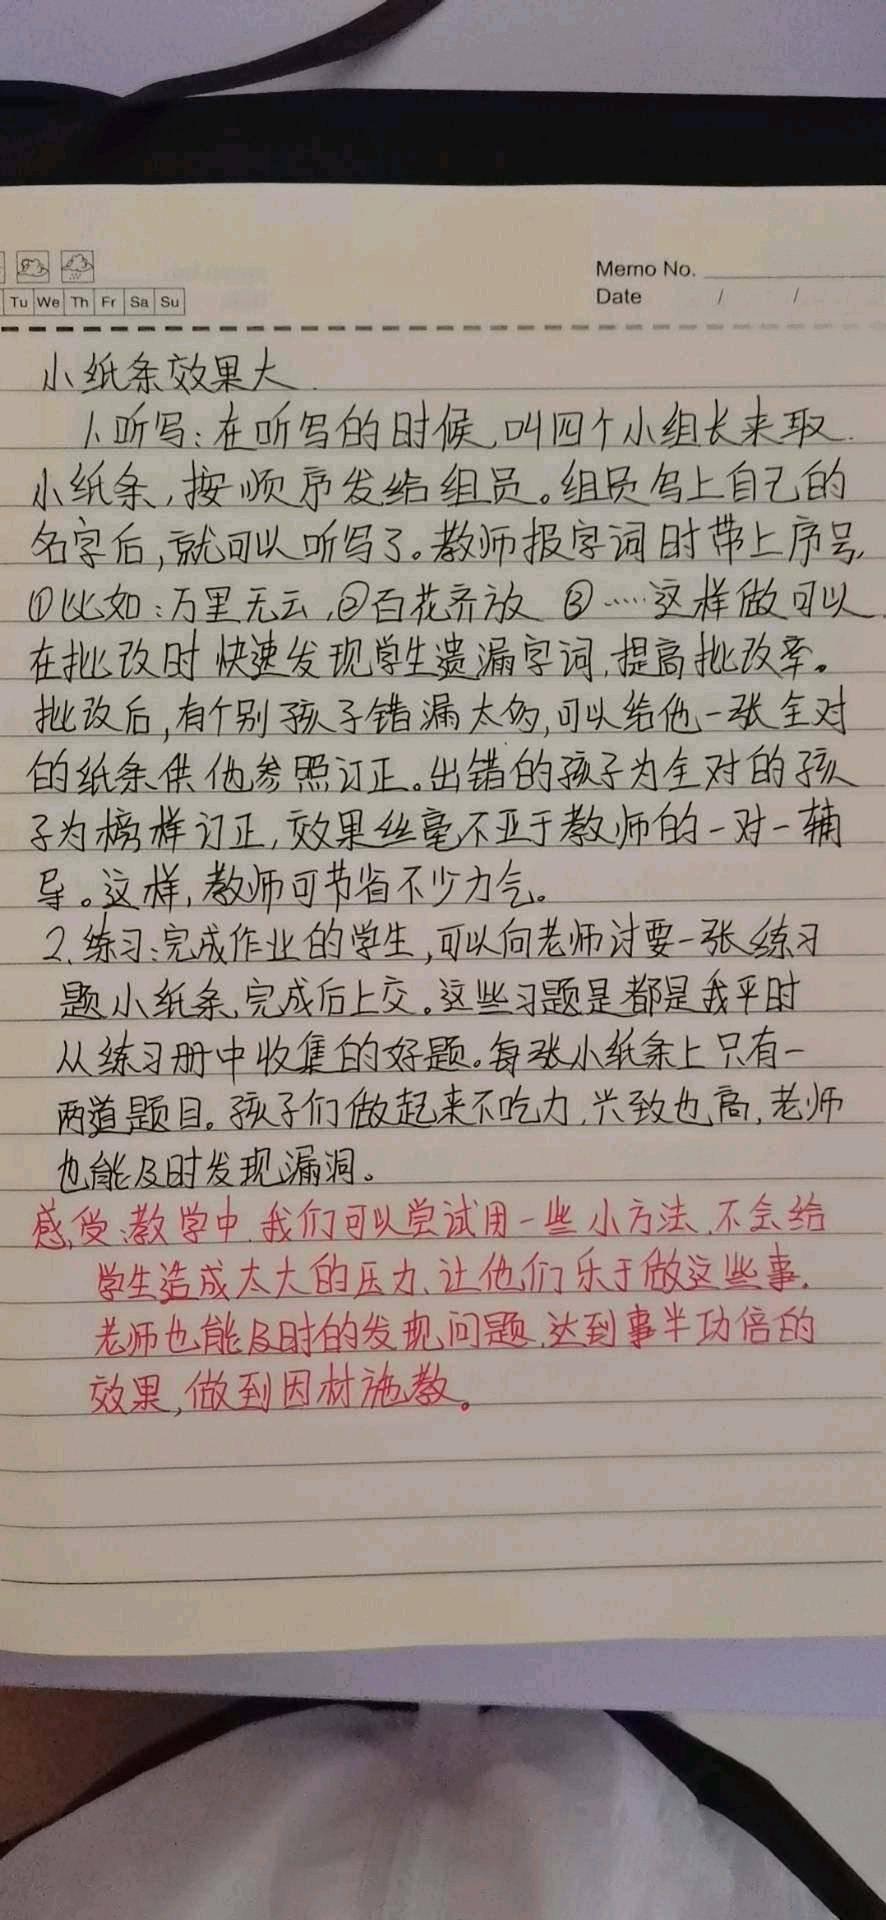 Memo No.
Tu We Th Fr Sa Su
Date / /
小纸条效果大.
1.听写:在听写的时候,叫四个小组长来取
小纸条,按顺序发给组员。组员写上自己的
名字后,就可以听写了。教师报字词时带上序号,
①比如:万里无云,②百花齐放 ③……这样做可以
在批改时快速发现学生遗漏字词,提高批改率。
批改后,有个别孩子错漏太多,可以给他一张全对
的纸条供他参照订正。出错的孩子为全对的孩
子为榜样订正,效果丝毫不亚于教师的一对一辅
导。这样,教师可节省不少力气。
2.练习:完成作业的学生,可以向老师讨要一张练习
题小纸条,完成后上交。这些习题是都是我平时
从练习册中收集的好题。每张小纸条上只有一
两道题目。孩子们做起来不吃力,兴致也高,老师
也能及时发现漏洞。
感受:教学中,我们可以尝试用一些小方法,不会给
学生造成太大的压力,让他们乐于做这些事,
老师也能及时的发现问题,达到事半功倍的
效果,做到因材施教。